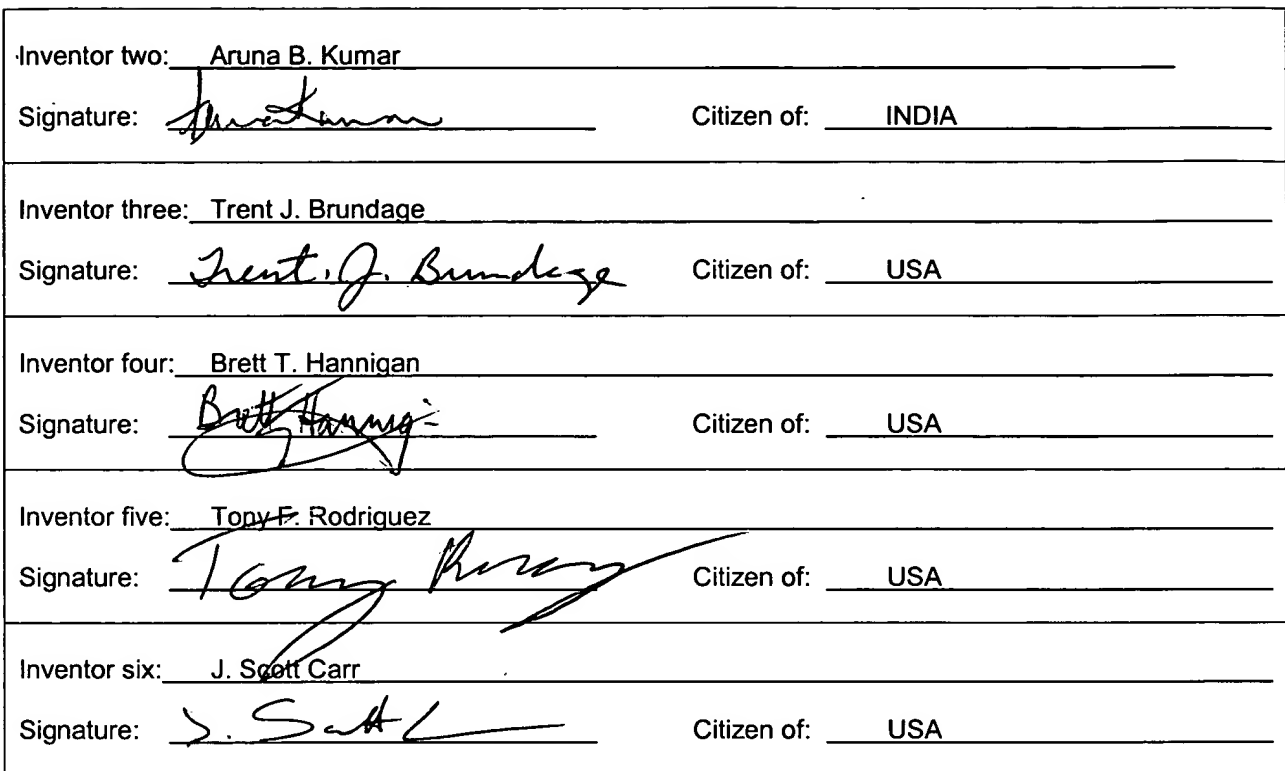 Inventor two: Aruna B. Kumar
Signature: Aruna Kumar Citizen of: INDIA
Inventor three: Trent J. Brundage
Signature: Trent. J. Brundage Citizen of: USA
Inventor four: Brett T. Hannigan
Signature: Brett Hannig Citizen of: USA
Inventor five: Tony F. Rodriguez
Signature: Tony Citizen of: USA
Inventor six: J. Scott Carr
Signature: J. Scott C Citizen of: USA